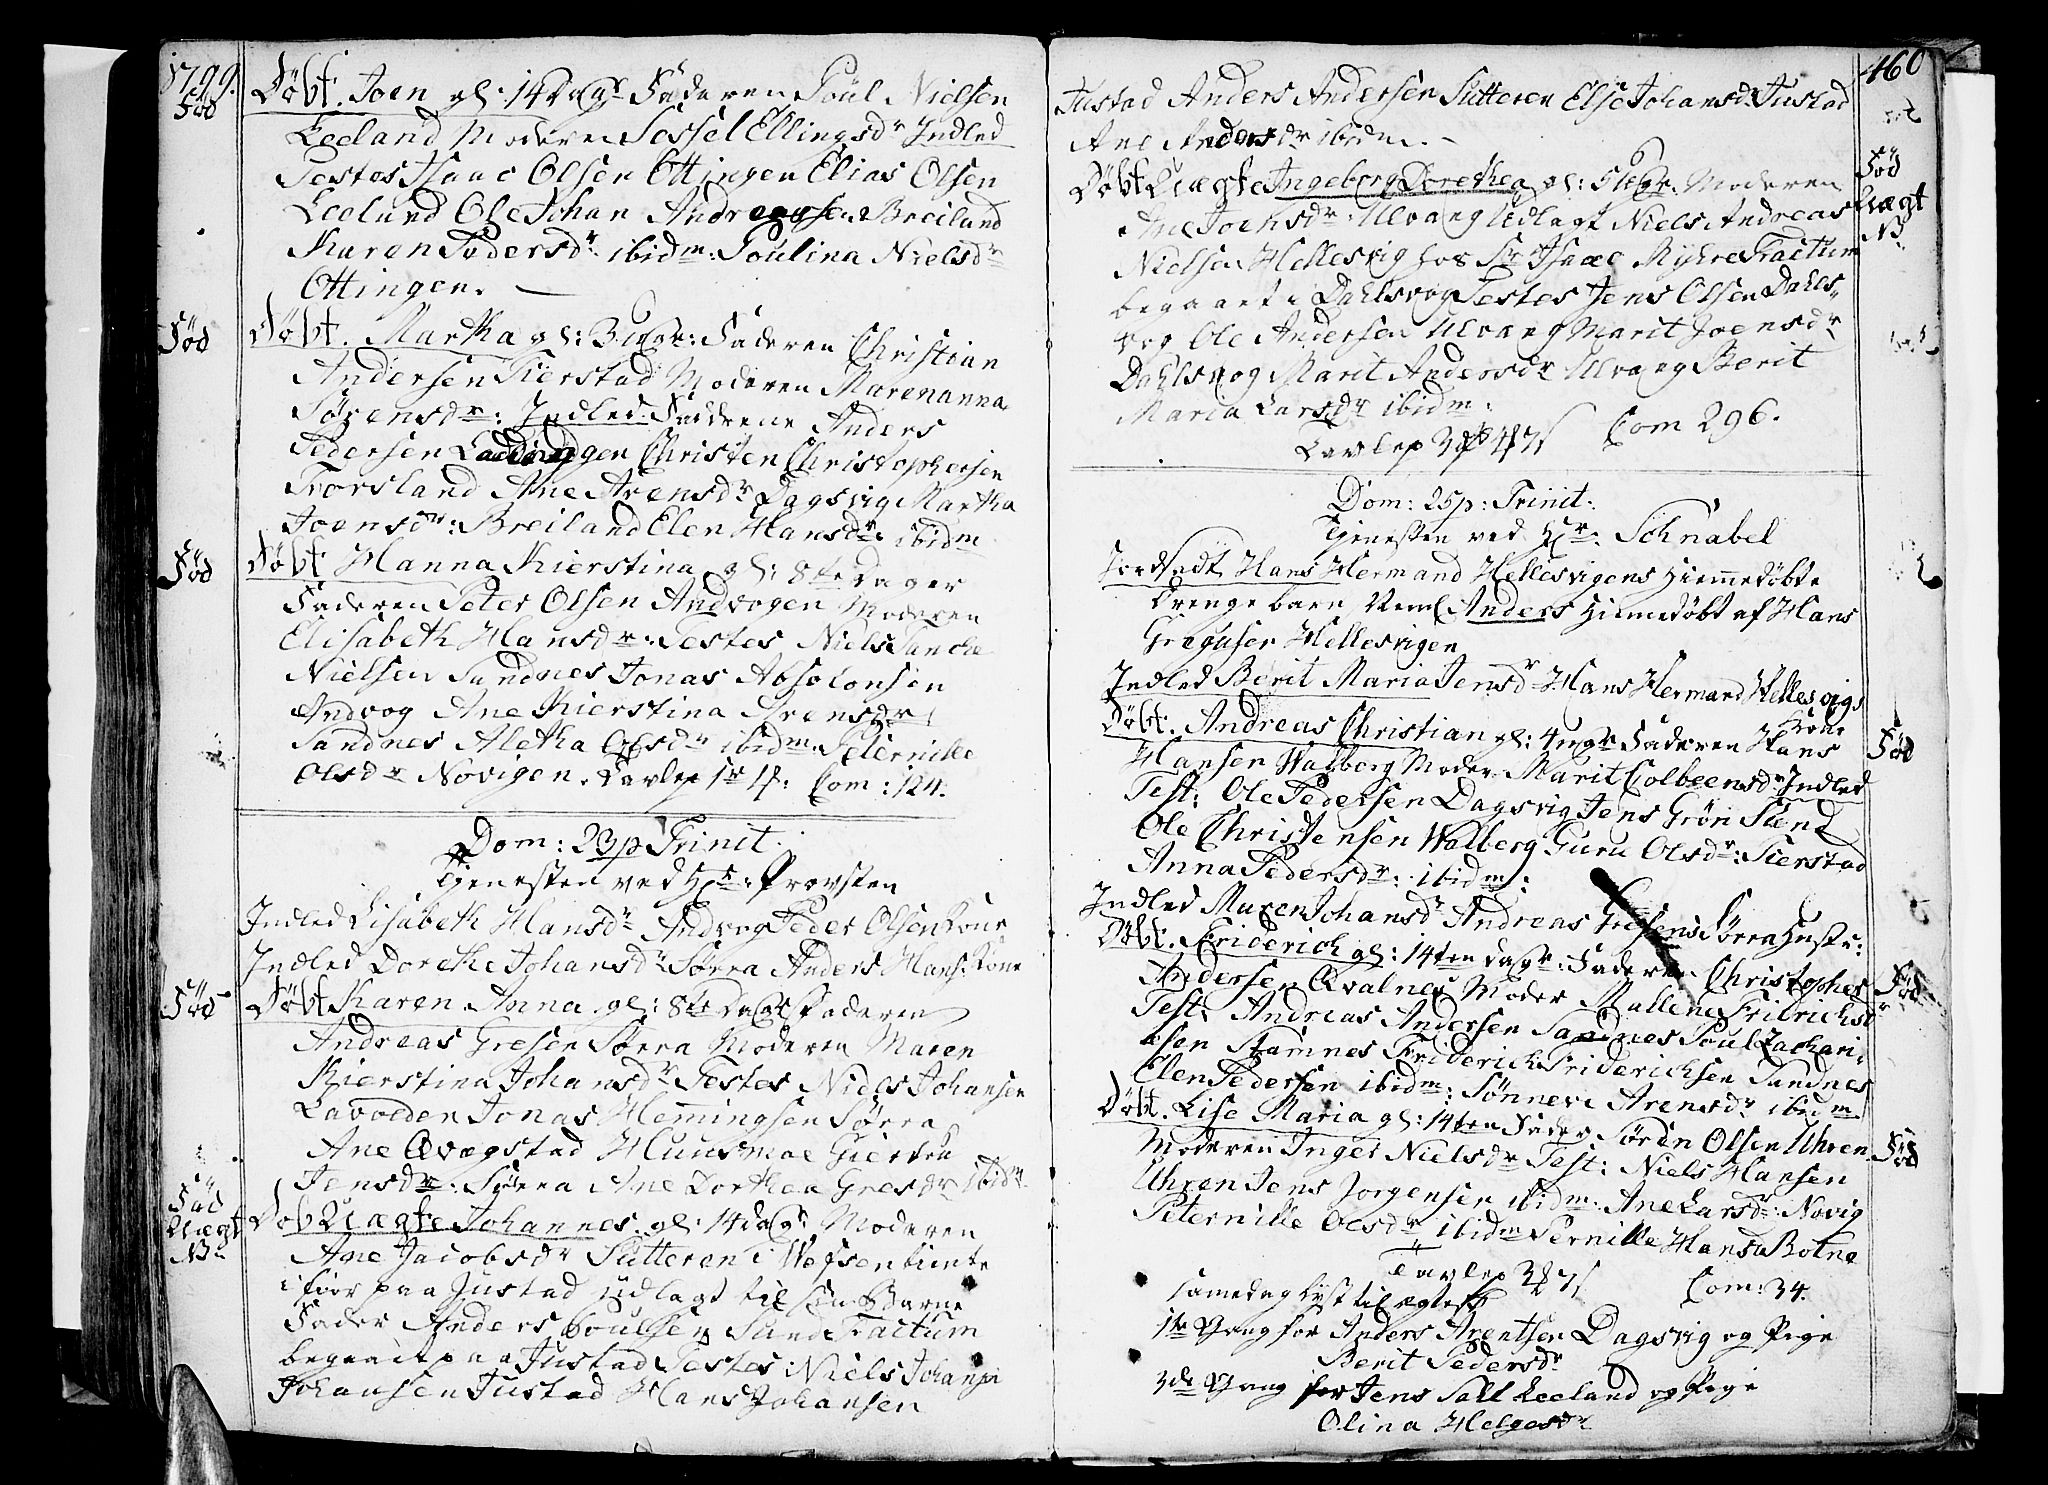 1799.
Fød
Døbt. Joen gl: 14 Dage Faderen Poul Nielsen
Leeland Moderen Sessel Ellingsdr Indled
Testes Isaac Olsen Ottingen Elias Olsen
Leeland Ole Johan Breiland
Karen Pedersdr ibidm: Poulina Nielsdr
Ottingen.
Fød
Døbt. Martha gl: 3 Faderen Christian
Andersen Tierstad Moderen Marenanna
Sørensdr: Indled Faddrene Anders
Pedersen Christen Christophersen
Forsland Ane Arensdr Dagsvig Martha
Joensdr: Breiland Elen Hansdr ibidm
Fød
Døbt Hanna Kierstina gl: 8te Dager
Faderen Peter Olsen Andvogen Moderen
Elisabeth Hansdr: Testes Niels
Nielsen Sandnes Jonas Absolonsen
Andvog Ane Kierstina Arensdr
Sandnes Aletha Olsdr ibidm Peternille
Olsdr Novigen. Tavlep Com: 124.
Dom: 23 p Trinit.
Tjenesten ved Hr: Provsten
Indled Lisabeth Hansdr Andvog Peder Olsen Kone
Indled Dorethe Johansdr Sørra Anders Hans: Kone
Fød
Døbt Karen Anna gl: 8te Dage Faderen
Andreas Gresen Sørra Moderen Maren
Kierstina Johansdr Testes Niels Johansen
Jonas Hemingsen Sørra
Ane Qvægstad
Jensdr: Sørra Ane Dorthea Gresdr ibidm
Fød
Uægt
NB
Døb Uægte Johannes gl: 14 dage Moderen
Ane Jacobsdr Sutteren i Wefsen tiente
i fior paa Justad udlagt til sin Barne
Fader Anders Poulsen Sund Factum
begaaet paa Justad Testes: Niels Johansen
Johansen Justad Hans Johansen
460
Justad Anders Andersen Sutteren Else Johansdr Justad
Ane Andersdr ibidm.
Fød
Uægt
NB
Døbt Uægte Ingeborg Dorethea gl: 5 Moderen
Ane Joensdr: Ulvang Udlagt Niels Andreas
Nielsen Hellesvig hos Sr Isaac Myhre Factum
begaaet i Dahlsvog Testes Jens Olsen Dahls-
vog Ole Andersen Ulvang Marit Joensdr
Dahlsvog Marit Andersdr Ulvang Berit
Maria Larsdr ibidm:
Tavlep Com 296.
Dom: 25 p: Trinit:
Tjenesten ved Hr: Schnabel
Jordfæst Hans Hermand Hellesvigens Hiemmedøbte
Drenge barn Neml Anders Hiemedøbt af Hans
Gregusen Hellesvigen
Indled Berit Maria Jensdr Hans Hermand Hellesvigs
Kone
Fød
Døbt. Andreas Christian gl: 4 Faderen Hans
Hansen Walberg Moder Marit Colbeensdr Indled
Test: Ole Pedersen Dagsvig Jens Grøn Sund
Ole Christensen Walberg Guru Olsdr: Tierstad
Anna Pedersdr: ibidm:
Indled Maren Johansdr Andreas Gresens Sørra Hustr:
Fød
Døbt. Friderich gl: 14ten dage: Faderen Christopher
Andersen Qvalnes Moder Mallena Fridrichsdr
Test: Andreas Andersen Sandnes Poul Zachari-
asen Stamnes Friderich Friderichsen Sandnes
Elen Pedersen ibidm: Sønnevi Arensdr ibidm
Fød
Døbt. Lise Maria gl: 14ten Fader Søren Olsen Uhren
Moderen Inger Nielsdr Test: Niels Hansen
Uhren Jens Jorgensen ibidm: Ane Larsdr: Novig
Peternille Olsdr ibidm Pernille Hansdr Botne
Tavlep Com: 34.
Samedag lyst til ægtesk
1te Gang for Anders Arentsen Dagsvig og Pige
Berit Pedersdr
3de Gang for Jens Sall Leeland og Pige
Olina Helgesdr